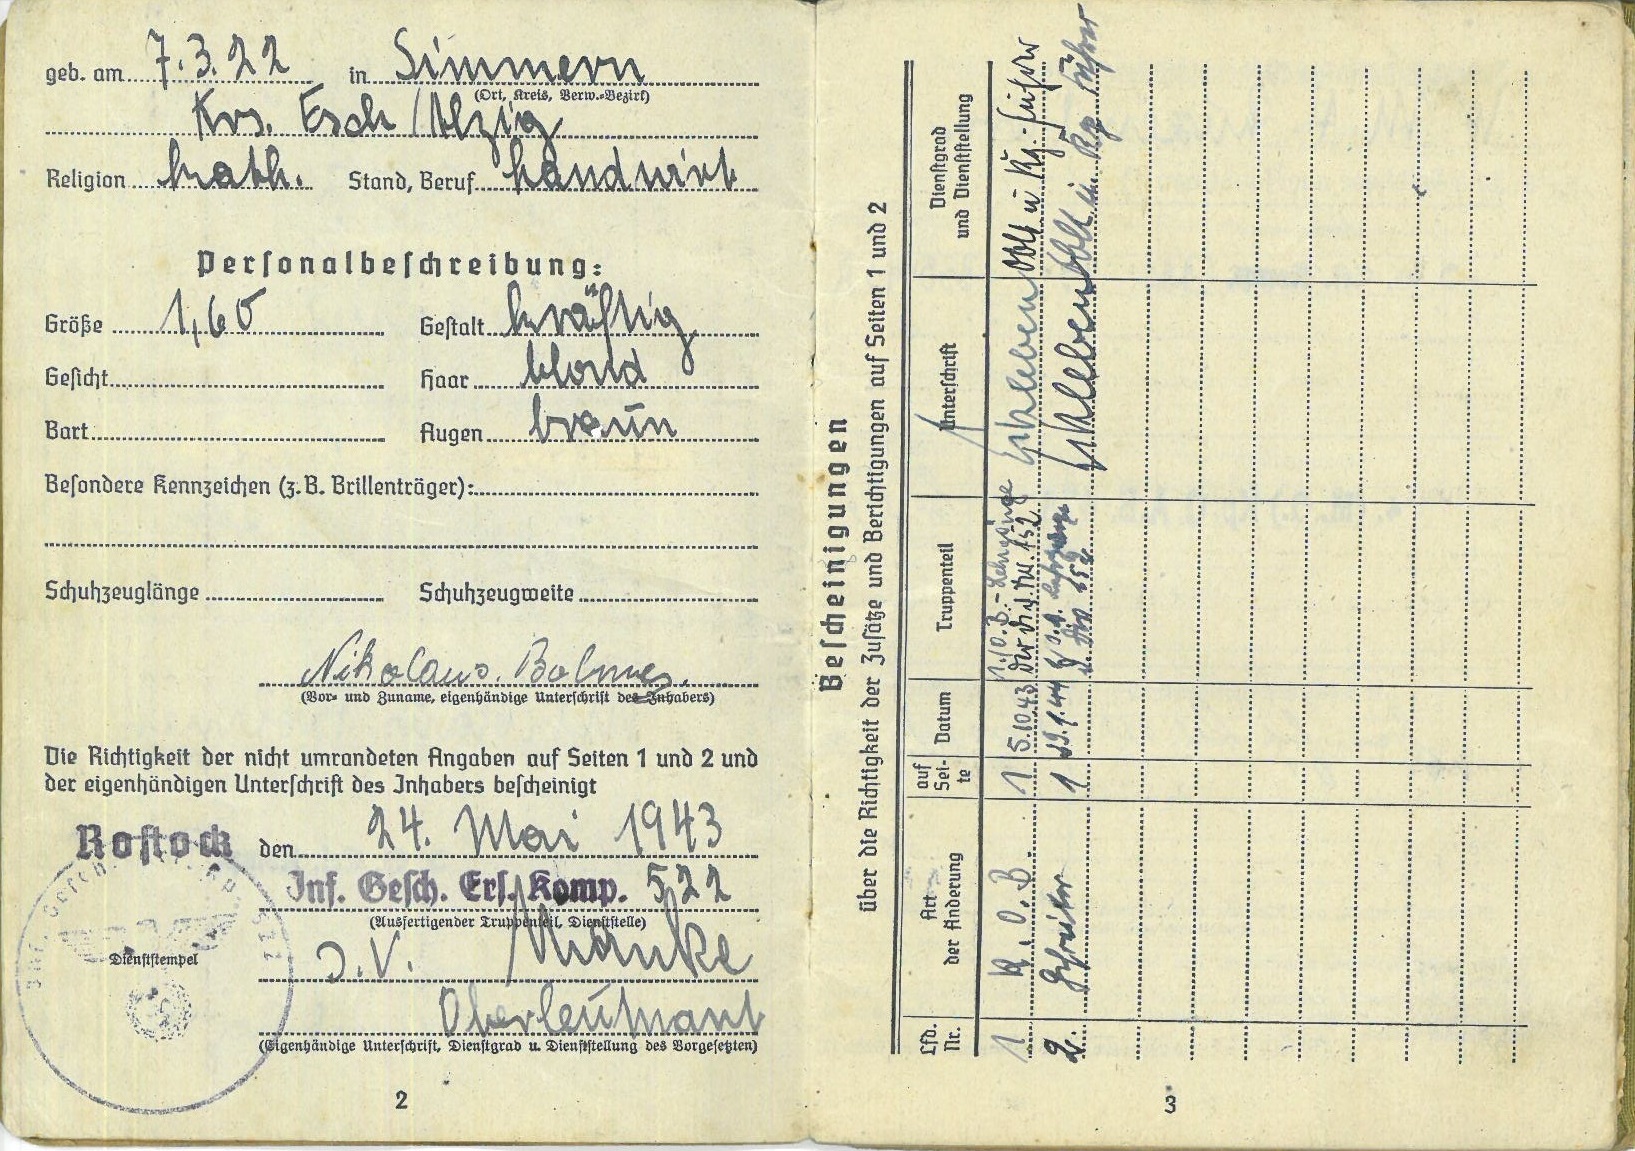 geb. am 7.3.22 in Simmern
(Ort, Kreis, Verw.-Bezirk)
Krs. Esch / Alzig
Religion kath. Stand, Beruf Landwirt
Personalbeschreibung:
Größe 1,60 Gestalt kräftig
Gesicht Haar blond
Bart Augen braun
Besondere Kennzeichen (z. B. Brillenträger):
Schuhzeuglänge Schuhzeugweite
Nikolaus Bolmes.
(Vor- und Zuname, eigenhändige Unterschrift des Inhabers)
Die Richtigkeit der nicht umrandeten Angaben auf Seiten 1 und 2 und
der eigenhändigen Unterschrift des Inhabers bescheinigt
Rostock den 24. Mai 1943
Inf. Gesch. Ers. Komp. 522
(Ausfertigender Truppenteil, Dienststelle)
Dienststempel
J. V. Manke
Oberleutnant
(Eigenhändige Unterschrift, Dienstgrad u. Dienststellung des Vorgesetzten)
2
Bescheinigungen
über die Richtigkeit der Zusätze und Berichtigungen auf Seiten 1 und 2
Lfd. Nr. Art der Änderung auf Seite Datum Truppenteil Unterschrift Dienstgrad und Dienststellung
1 K.O.B. 1 5.10.43 1./O.B.-Lehrgänge der Div. Nr. 152 Oblt u Kp.-Führer
2. Gefreiter 1 Oblt u. Kp Führer
3